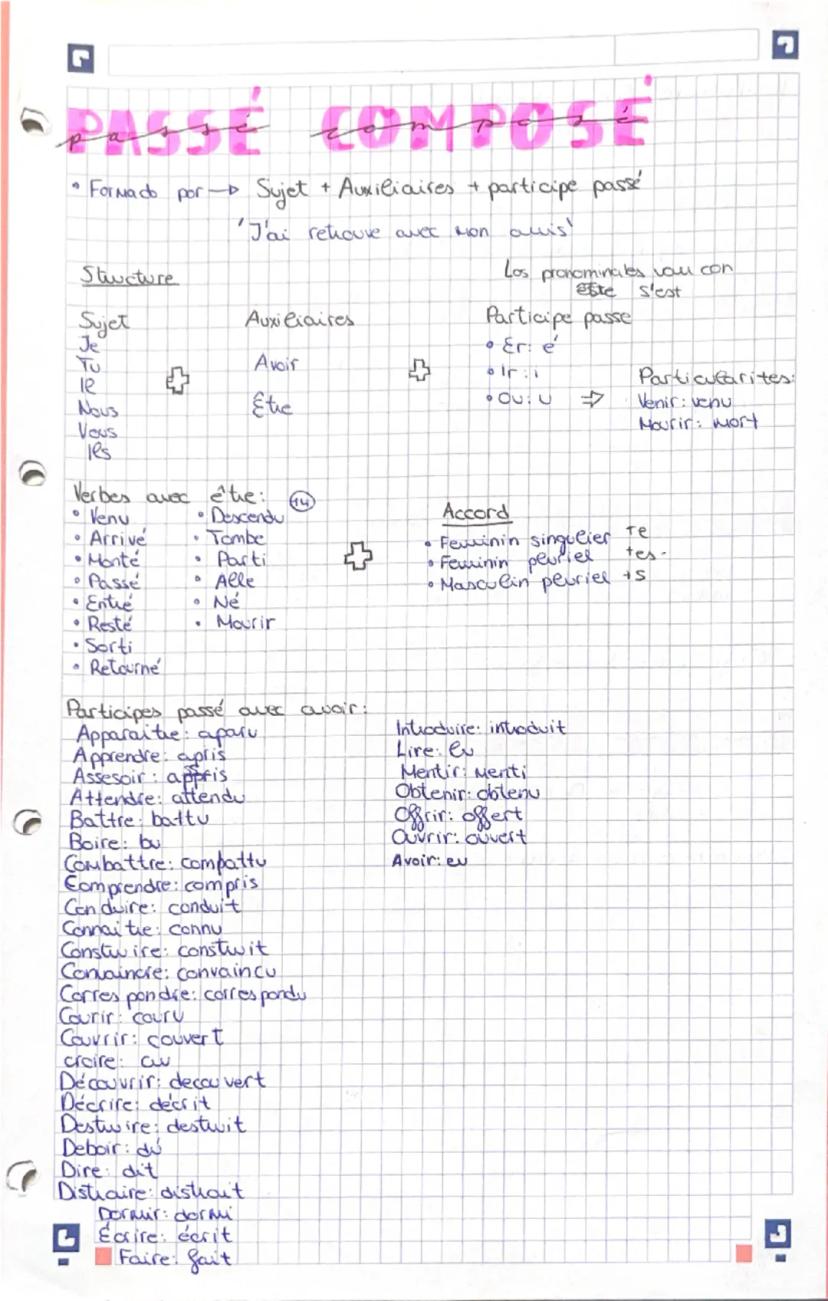 PASSÉ COMPOSÉ
passé composé
• Formado por → Sujet + Auxiliaires + participe passé
'J'ai retrouve avec mon amis'
Structure
Los pronominales van con
este s'est
Sujet
Je
Tu
Il
Nous
Vous
Ils
Auxiliaires
Avoir
Être
Participe passe
• Er: é
• Ir: i
• Ou: u ⇒
Particularites:
Venir: venu
Mourir: mort
Verbes avec être: 14
• Venu
• Arrivé
• Monté
• Passé
• Entré
• Resté
• Sorti
• Retourné
• Descendu
• Tombe
• Parti
• Alle
• Né
• Mourir
Accord
• Feminin singulier +e
• Feminin pluriel +es.
• Masculin pluriel +s
Participes passé avec avoir:
Apparaître: aparu
Apprendre: apris
Assesoir: appris
Attendre: attendu
Battre: battu
Boire: bu
Combattre: compattu
Comprendre: compris
Conduire: conduit
Connaitre: connu
Construire: construit
Convaincre: convaincu
Correspondre: correspondu
Courir: couru
Couvrir: couvert
croire: cru
Découvrir: decouvert
Décrire: décrit
Destruire: destruit
Deboir: dû
Dire: dit
Distraire: distrait
Dormir: dormi
Écrire: écrit
Faire: fait
Introduire: introduit
Lire: lu
Mentir: menti
Obtenir: obtenu
Offrir: offert
Ouvrir: ouvert
Avoir: eu